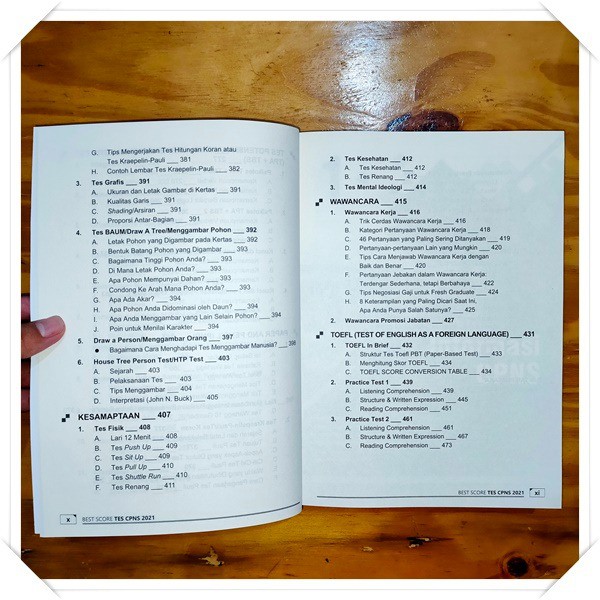 G. Tips Mengerjakan Tes Hitungan Koran atau
Tes Kraepelin-Pauli ___ 381
H. Contoh Lembar Tes Kraepelin-Pauli ___ 382
3. Tes Grafis ___ 391
A. Ukuran dan Letak Gambar di Kertas ___ 391
B. Kualitas Garis ___ 391
C. Shading/Arsiran ___ 391
D. Proporsi Antar-Bagian ___ 391
4. Tes BAUM/Draw A Tree/Menggambar Pohon ___ 392
A. Letak Pohon yang Digambar pada Kertas ___ 392
B. Bentuk Batang Pohon yang Digambar ___ 393
C. Bagaimana Tinggi Pohon Anda? ___ 393
D. Di Mana Letak Pohon Anda? ___ 393
E. Apa Pohon Mempunyai Dahan? ___ 393
F. Condong Ke Arah Mana Pohon Anda? ___ 393
G. Apa Ada Akar? ___ 394
H. Apa Pohon Anda Didominasi oleh Daun? ___ 394
I. Apa Anda Menggambar yang Lain Selain Pohon? ___ 394
J. Poin untuk Menilai Karakter ___ 394
5. Draw a Person/Menggambar Orang ___ 397
● Bagaimana Cara Menghadapi Tes Menggambar Manusia? ___ 398
6. House Tree Person Test/HTP Test ___ 403
A. Sejarah ___ 403
B. Pelaksanaan Tes ___ 403
C. Tips Menggambar ___ 404
D. Interpretasi (John N. Buck) ___ 405
KESAMAPTAAN ___ 407
1. Tes Fisik ___ 408
A. Lari 12 Menit ___ 408
B. Tes Push Up ___ 409
C. Tes Sit Up ___ 409
D. Tes Pull Up ___ 410
E. Tes Shuttle Run ___ 410
F. Tes Renang ___ 411
x BEST SCORE TES CPNS 2021
2. Tes Kesehatan ___ 412
A. Tes Kesehatan ___ 412
B. Tes Renang ___ 412
3. Tes Mental Ideologi ___ 414
WAWANCARA ___ 415
1. Wawancara Kerja ___ 416
A. Trik Cerdas Wawancara Kerja ___ 416
B. Kategori Pertanyaan Wawancara Kerja ___ 418
C. 46 Pertanyaan yang Paling Sering Ditanyakan ___ 419
D. Pertanyaan-pertanyaan Lain yang Mungkin ___ 420
E. Tips Cara Menjawab Wawancara Kerja dengan
Baik dan Benar ___ 420
F. Pertanyaan Jebakan dalam Wawancara Kerja:
Terdengar Sederhana, tetapi Berbahaya ___ 422
G. Tips Negosiasi Gaji untuk Fresh Graduate ___ 424
H. 8 Keterampilan yang Paling Dicari Saat Ini,
Apa Anda Punya Salah Satunya? ___ 425
2. Wawancara Promosi Jabatan ___ 427
TOEFL (TEST OF ENGLISH AS A FOREIGN LANGUAGE) ___ 431
1. TOEFL In Brief ___ 432
A. Struktur Tes Toefl PBT (Paper-Based Test) ___ 433
B. Menghitung Skor TOEFL ___ 434
C. TOEFL SCORE CONVERSION TABLE ___ 434
2. Practice Test 1 ___ 439
A. Listening Comprehension ___ 439
B. Structure & Written Expression ___ 445
C. Reading Comprehension ___ 451
3. Practice Test 2 ___ 461
A. Listening Comprehension ___ 461
B. Structure & Written Expression ___ 467
C. Reading Comprehension ___ 473
BEST SCORE TES CPNS 2021 xi